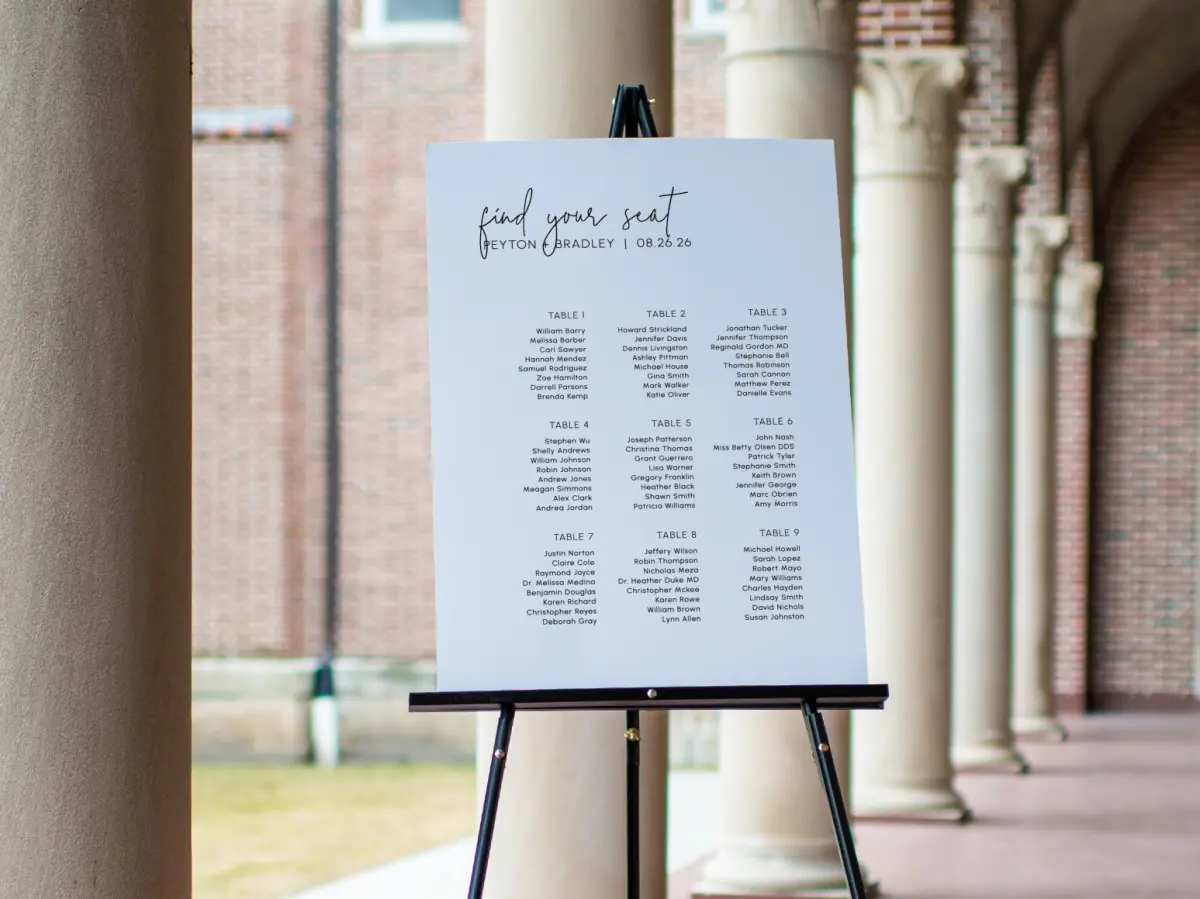 find your seat
PEYTON + BRADLEY | 08.26.26
TABLE 1
William Barry
Melissa Barber
Carl Sawyer
Hannah Mendez
Samuel Rodriguez
Zoe Hamilton
Darrell Parsons
Brenda Kemp
TABLE 2
Howard Strickland
Jennifer Davis
Dennis Livingston
Ashley Pittman
Michael House
Gina Smith
Mark Walker
Katie Oliver
TABLE 3
Jonathan Tucker
Jennifer Thompson
Reginald Gordon MD
Stephanie Bell
Thomas Robinson
Sarah Cannon
Matthew Perez
Danielle Evans
TABLE 4
Stephen Wu
Shelly Andrews
William Johnson
Robin Johnson
Andrew Jones
Meagan Simmons
Alex Clark
Andrea Jordan
TABLE 5
Joseph Patterson
Christina Thomas
Grant Guerrero
Lisa Warner
Gregory Franklin
Heather Black
Shawn Smith
Patricia Williams
TABLE 6
John Nash
Miss Betty Olsen DDS
Patrick Tyler
Stephanie Smith
Keith Brown
Jennifer George
Marc Obrien
Amy Morris
TABLE 7
Justin Norton
Claire Cole
Raymond Joyce
Dr. Melissa Medina
Benjamin Douglas
Karen Richard
Christopher Reyes
Deborah Gray
TABLE 8
Jeffery Wilson
Robin Thompson
Nicholas Meza
Dr. Heather Duke MD
Christopher Mckee
Karen Rowe
William Brown
Lynn Allen
TABLE 9
Michael Howell
Sarah Lopez
Robert Mayo
Mary Williams
Charles Hayden
Lindsay Smith
David Nichols
Susan Johnston